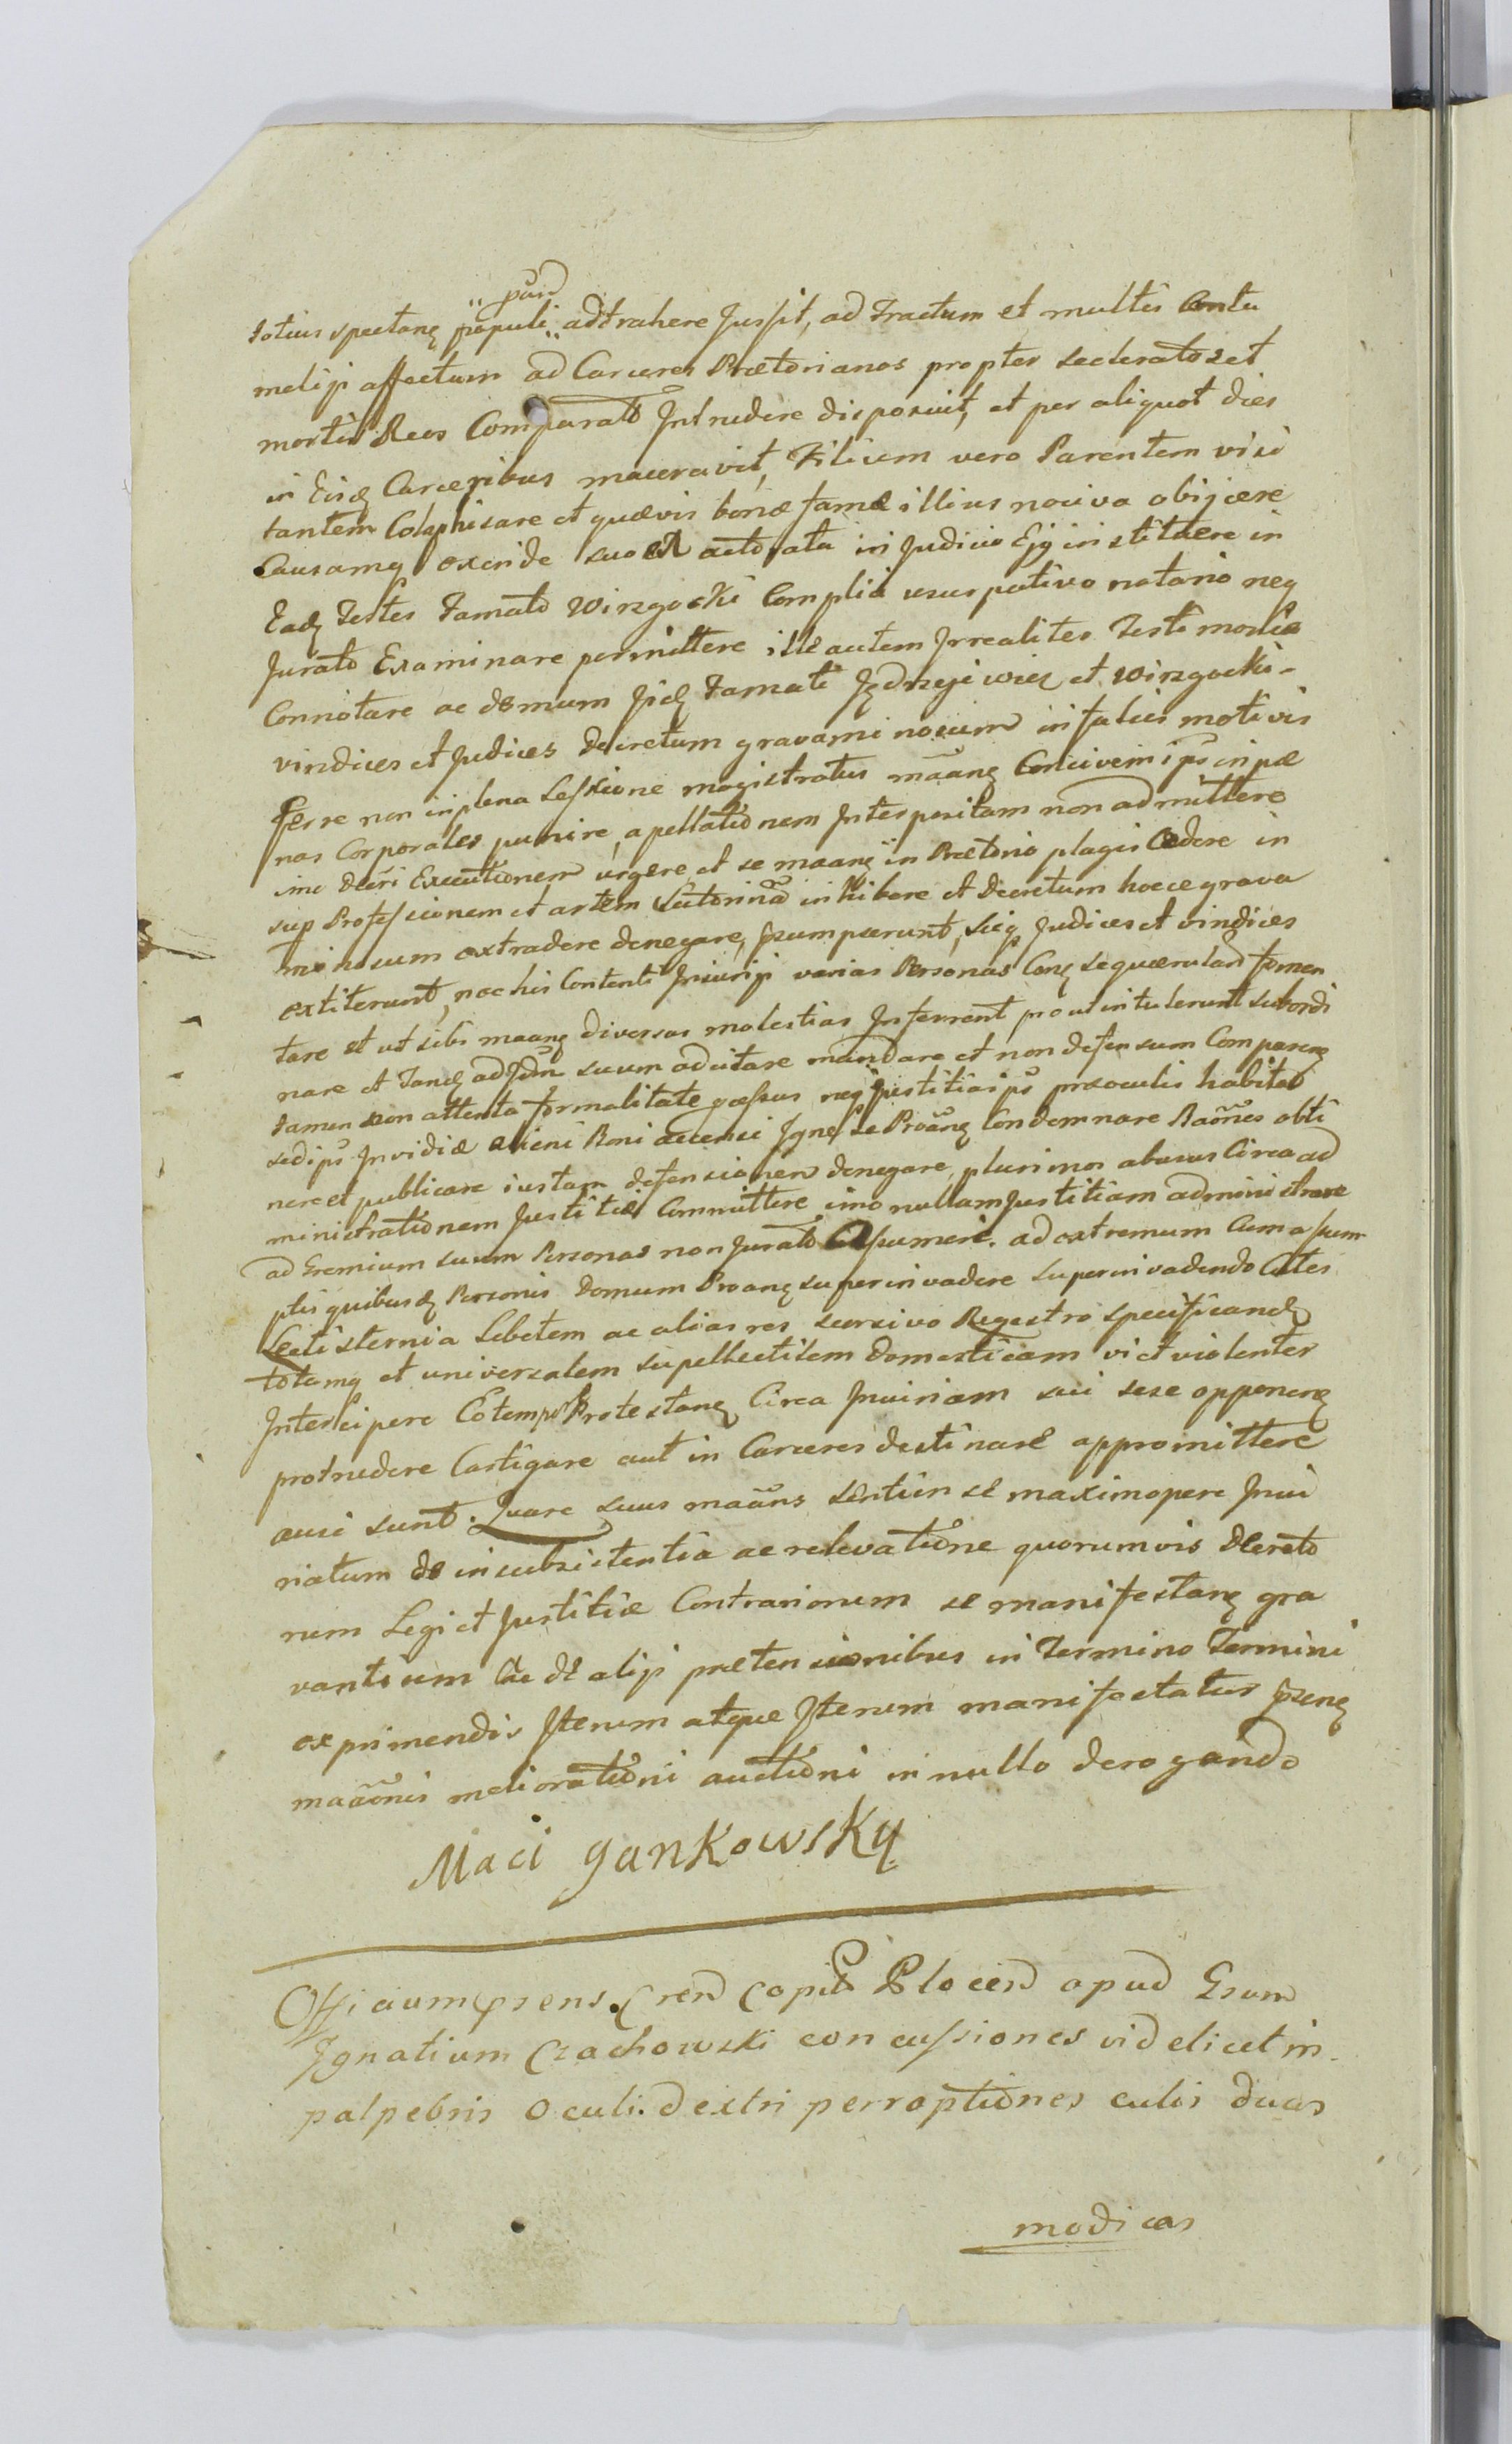 pūr
totius spectanę populi adtrahere Jussit, ad Tractum et multis Contu
melijs affectum ad Carceres Prætorianos propter sceleratos et
mortis Reos Comparatō Intrudere disposuit, et per aliquot dies
in Eisd Carceribus maceravit, Filium vero Parentem visi
tantem Colaphisare et quævis bonæ famæ illius nociva obijcere
Causamq exinde suo actoratu in Judicio Ejq instituere in
Eadq Testes Famato Wirzgocki Complici usurpativo notario neq
Jurato Examinare permittere ille autem Irrealiter Testimonia
Connotare ac demum Jidq Famati Jędrzejewicz et Wirzgocki
vindices et Judices Decretum gravaminosum infulcis motivis
Ferre non in plena Sessione magistratus māanę Concivem ips in pæ
nas Corporales punire, apellationem Interpositam non admittere
imo Decri Executionem urgere et se maanę in Prætorio plagis Cædere in
sup Professionem et artem Sutorinā inhibere et Decretum hocce grava
minosum extradere denegare, præsumpserunt, Sicq Judices et vindices
extiterunt, nec his Contenti Iniurijs varias Personas Conq se quæruland fomen
tare et ut sibi maanę diversas molestias Inferrent prout intulerunt subordi
nare et Tandq ad Jdm suum adcitare mandare et non defensum Comparenę
tamen non attenta formalitate pcessus neq Justitia ips præoculis habita
sed ips Invidiæ alieni Boni accensi Igne se Proānę Condemnare Raones obti
nere et publicare iustam defensionem denegare, plurimos abusus Circa ad
ministrationem Justitiæ Committere imo nullam Justitiam administrare
ad Gremium suum Personas non Juratō Assumere. ad extremum Cum assum
ptis quibusdq Personis Domum Proanę superinvadere superinvadendo
Lectisternia Lebetem ac alias res seorsivo Regestro specificandq
totamq et universalem supellectilem Domesticam vi et violenter
Intercipere Eotempe Protestanę Circa Iniuriam sui sese opponenę
protrudere Castigare aut in Carceres destinare appromittere
ausi sunt. Quare suus maāns sentien se maximopere Iniu
riatum de insubsistentia ac relevatione quorumvis Decreto
rum Legi et Justitiæ Contrariorum se manifestanę gra
vantium ac de alijs prætensionibus in Termino Termini
exprimendis Iterum atque Iterum manifestatur psenę
maāonis melioratiōni auctiōni in nullo derogando
Maci Jankowsky
Officium psens Cren Capit Plocen apud Gsum
Ignatium Czachowski concussiones videlicet in
palpebris oculi dextri perroptiones cutis duas
modicas